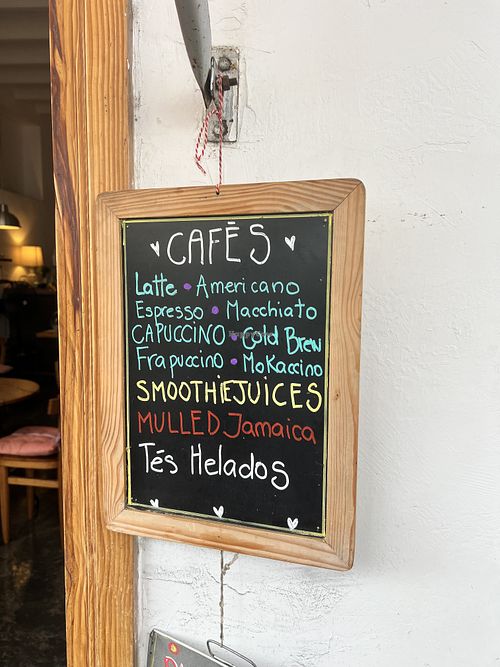 CAFÉS
Latte • Americano
Espresso • Macchiato
CAPUCCINO • Cold Brew
Frapuccino • Mokaccino
SMOOTHIEJUICES
MULLED Jamaica
Tés Helados